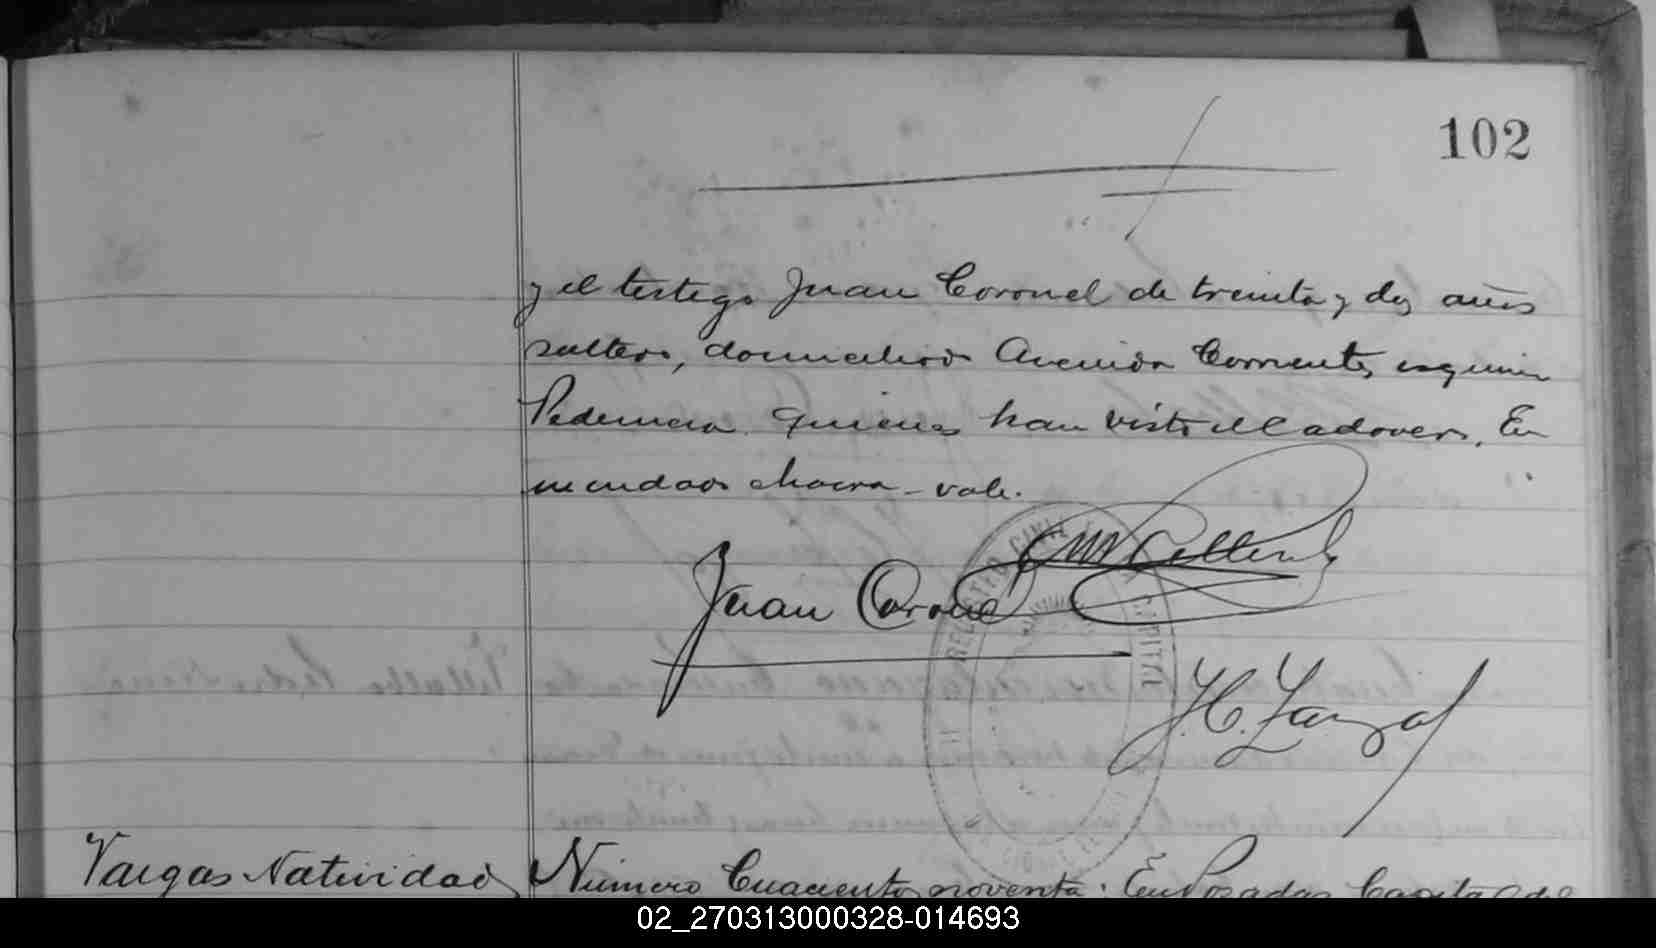 102
y el testigo Juan Coronel de treinta y dos años
soltero, domiciliado Avenida Corrientes esquina
Pedernera quienes han visto el cadaver. En
mendado chacra - vale.
Juan Coronel
REGISTRO CIVIL
CAPITAL
Vargas Natividad
Número Cuacientos noventa. En Posadas Capital del
02_270313000328-014693